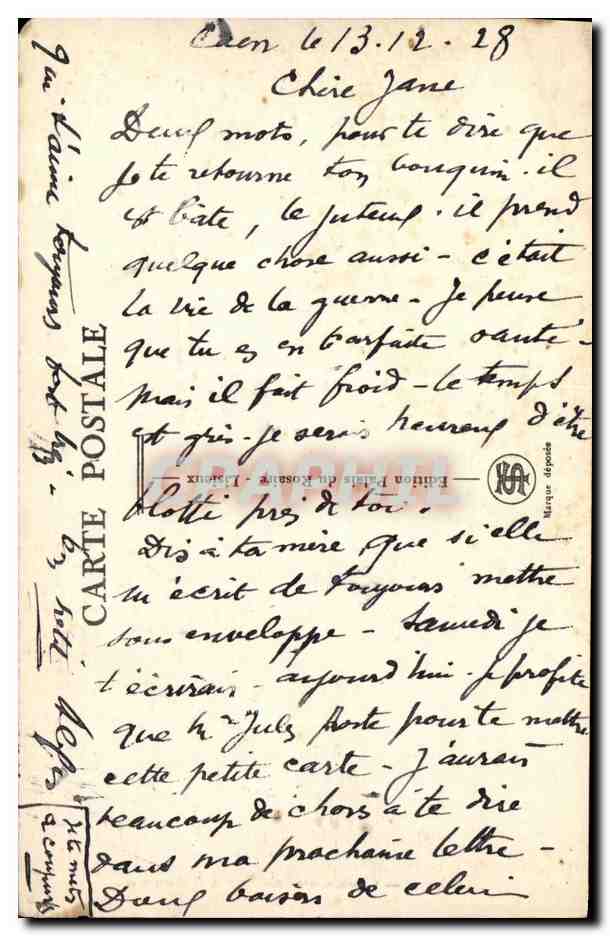 Caen le 13.12.28
Chère Jane
Deux mots, pour te dire que
je te retourne ton bouquin. il
est bâte, le juteux. il prend
quelque chose aussi - c'était
la vie de la guerre - Je pense
que tu es en parfaite santé -
mais il fait froid - le temps
est gris - je serais heureux d'être
blotti près de toi.
Dis à ta mère, que si elle
m'écrit de toujours mettre
sous enveloppe - Samedi je
t'écrirais - aujourd'hui - je profite
que Mr Jules poste pour te mettre
cette petite carte - J'aurais
beaucoup de choses à te dire
dans ma prochaine lettre -
Doux baisers de celui
qui t'aime toujours
CARTE POSTALE
Edition Palais du Rosaire - Lisieux
Marque déposée
CPAPHIL